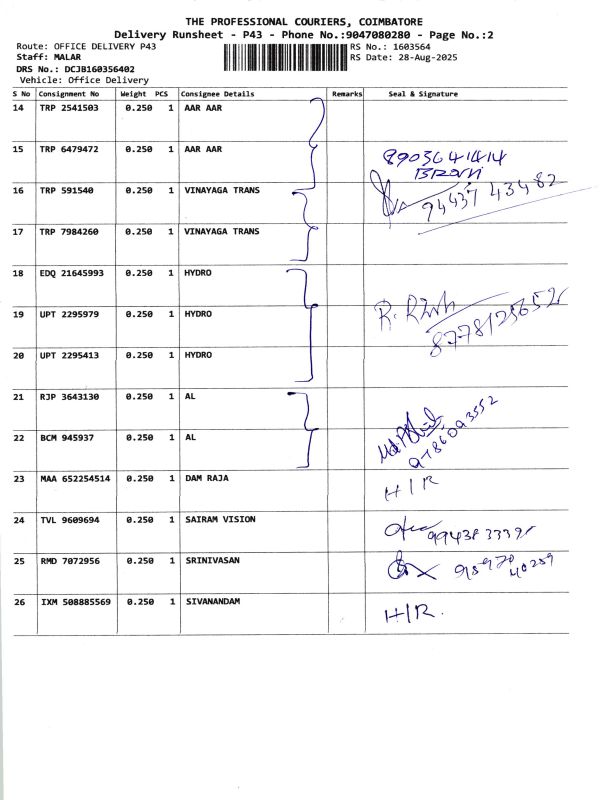 THE PROFESSIONAL COURIERS, COIMBATORE
Delivery Runsheet - P43 - Phone No.:9047080280 - Page No.:2
Route: OFFICE DELIVERY P43
RS No.: 1603564
Staff: MALAR
RS Date: 28-Aug-2025
DRS No.: DCJB160356402
Vehicle: Office Delivery
S No Consignment No Weight PCS Consignee Details Remarks Seal & Signature
14 TRP 2541503 0.250 1 AAR AAR
15 TRP 6479472 0.250 1 AAR AAR 8903641414
16 TRP 591540 0.250 1 VINAYAGA TRANS 94437 43482
17 TRP 7984260 0.250 1 VINAYAGA TRANS
18 EDQ 21645993 0.250 1 HYDRO
19 UPT 2295979 0.250 1 HYDRO
20 UPT 2295413 0.250 1 HYDRO
21 RJP 3643130 0.250 1 AL
22 BCM 945937 0.250 1 AL
23 MAA 652254514 0.250 1 DAM RAJA H/R
24 TVL 9609694 0.250 1 SAIRAM VISION
25 RMD 7072956 0.250 1 SRINIVASAN
26 IXM 508885569 0.250 1 SIVANANDAM H/R.